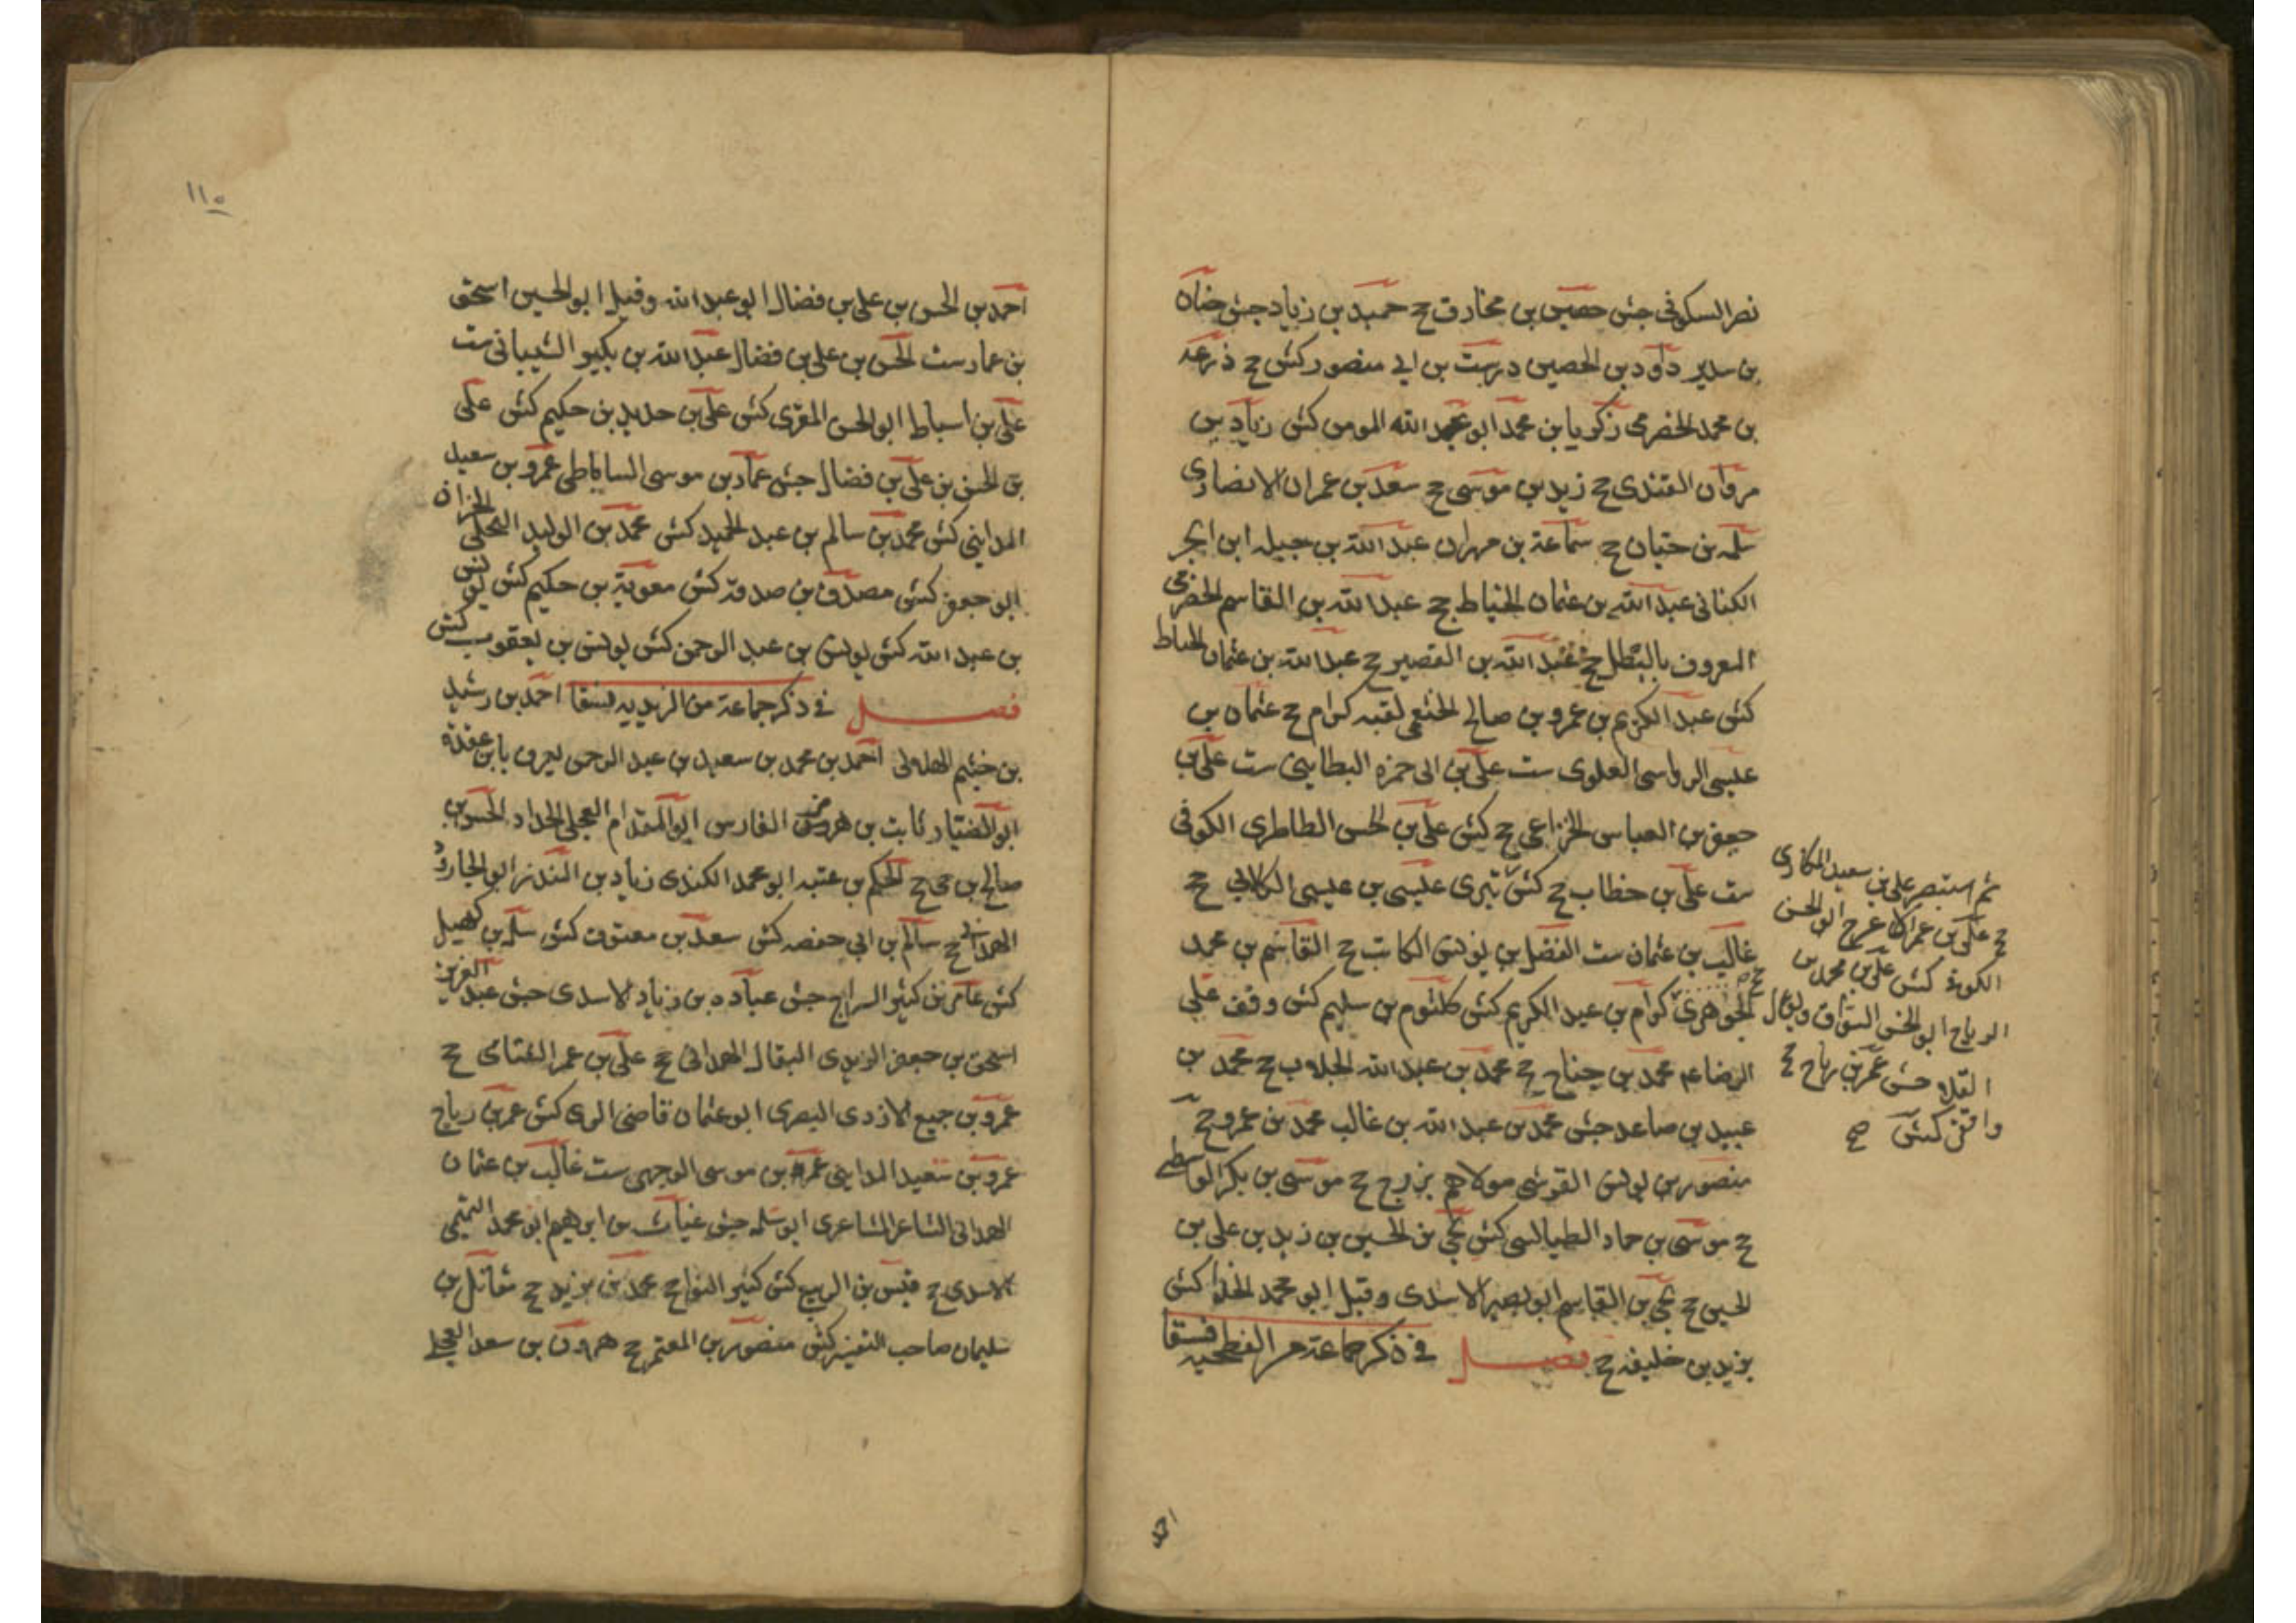 نصر السكوني جش حصين بن مخارق ح حميد بن زياد جش حنان
بن سدير داود بن الحصين درست بن ابي منصور كش ح ذرعه
بن محمد الحضرمي زكريا بن محمد ابو عبد الله المومن كش زياد بن
مروان القندى ح زيد بن موسى ح سعد بن عمران الانصارى
سلمه بن حنان ح سماعة بن مهران عبد الله بن جبيله ابن ابجر
الكناني عبد الله بن عثمان الخياط ح عبد الله بن القاسم الحضرمي
المعروف بالبطل ح عبد الله بن القصير ح عبد الله بن عثمان الحناط
كش عبد الكريم بن عمرو بن صالح الخثعمي لقبه كرام ح عثمان بن
عيسى الرواسى العلوى ست على بن ابى حمزه البطايني ست على بن
جعفر بن العباس الخزاعي ح كش على بن الحسن الطاطرى الكوفى
ست على بن خطاب ح كش عيسى بن عيسى الكلابي ح
غالب بن عثمان ست الفضل بن يونس الكاتب ح القاسم بن محمد
الجواهرى كرام بن عبد الكريم كش كلثوم بن سليم كش وقف على
الرضا عم محمد بن جناح ح محمد بن عبد الله الجلاب ح محمد بن
عبيد بن صاعد جش محمد بن عبد الله بن غالب محمد بن عمرو ح
منصور بن يونس القرشى مولاهم بزرج ح موسى بن بكر الواسطى
ح موسى بن حماد الطيالسى كش يحيى بن الحسين بن زيد بن على بن
الحسين ح يحيى بن القاسم ابو بصير الاسدى وقيل ابو محمد الحذا كش
يزيد بن خليفه ح فصل في ذكر جماعة من الفطحيه فسقا
ثم استبصر على بن سعيد المكارى
ح على بن عمر الاعرج ابو الحسن
الكوفى كش على بن محمد بن
الرباح ابو الحسن السواق ويقال
القلا جش عمر بن رباح ح
واقفى كش صح
احمد
١١٥
احمد بن الحسن بن على بن فضال ابو عبد الله وقيل ابو الحسين اسحق
بن عمار ست الحسن بن على بن فضال عبد الله بن بكير الشيبانى ست
على بن اسباط ابو الحسن المقرى كش على بن حديد بن حكيم كش على
بن الحسن بن على بن فضال جش عمار بن موسى الساباطى عمرو بن سعيد
المدايني كش محمد بن سالم بن عبد الحميد كش محمد بن الوليد البجلى الخزاز
ابو جعفر كش مصدق بن صدقة كش معوية بن حكيم كش يونس
بن عبد الله كش يونس بن عبد الرحمن كش يونس بن يعقوب كش
فصل في ذكر جماعة من الزيديه فسقا احمد بن رشيد
بن خثيم الهلالى احمد بن محمد بن سعيد بن عبد الرحمن يعرف بابن عقدة
ثابت بن هرمز الفارسى ابو المقدام العجلى الحداد الحسن بن
صالح بن حى ح الحكم بن عتيبه ابو محمد الكندى زياد بن المنذر ابو الجارود
الهمدانى ح سالم بن ابى حفصه كش سعد بن كش سلمه بن كهيل
كش عامر بن كثير السراج جش عباده بن زياد الاسدى جش عبد العزيز
اسحق بن جعفر الزيدى البقال الهمدانى ح على بن عمر ح
عمرو بن جميع الازدى البصرى ابو عثمان قاضى الرى كش عمر بن رباح
عمرو بن سعيد المداينى بن موسى الوجيهى ست غالب بن عثمان
الهمدانى الشاعر المشاعرى ابو سلمه جش غياث بن ابرهيم ابو محمد التميمى
الاسدى ح قيس بن الربيع كش كثير النواح محمد بن يزيد ح مقاتل بن
سليمان صاحب التفسير كش منصور بن المعتمر ح هرون بن سعد العجلى